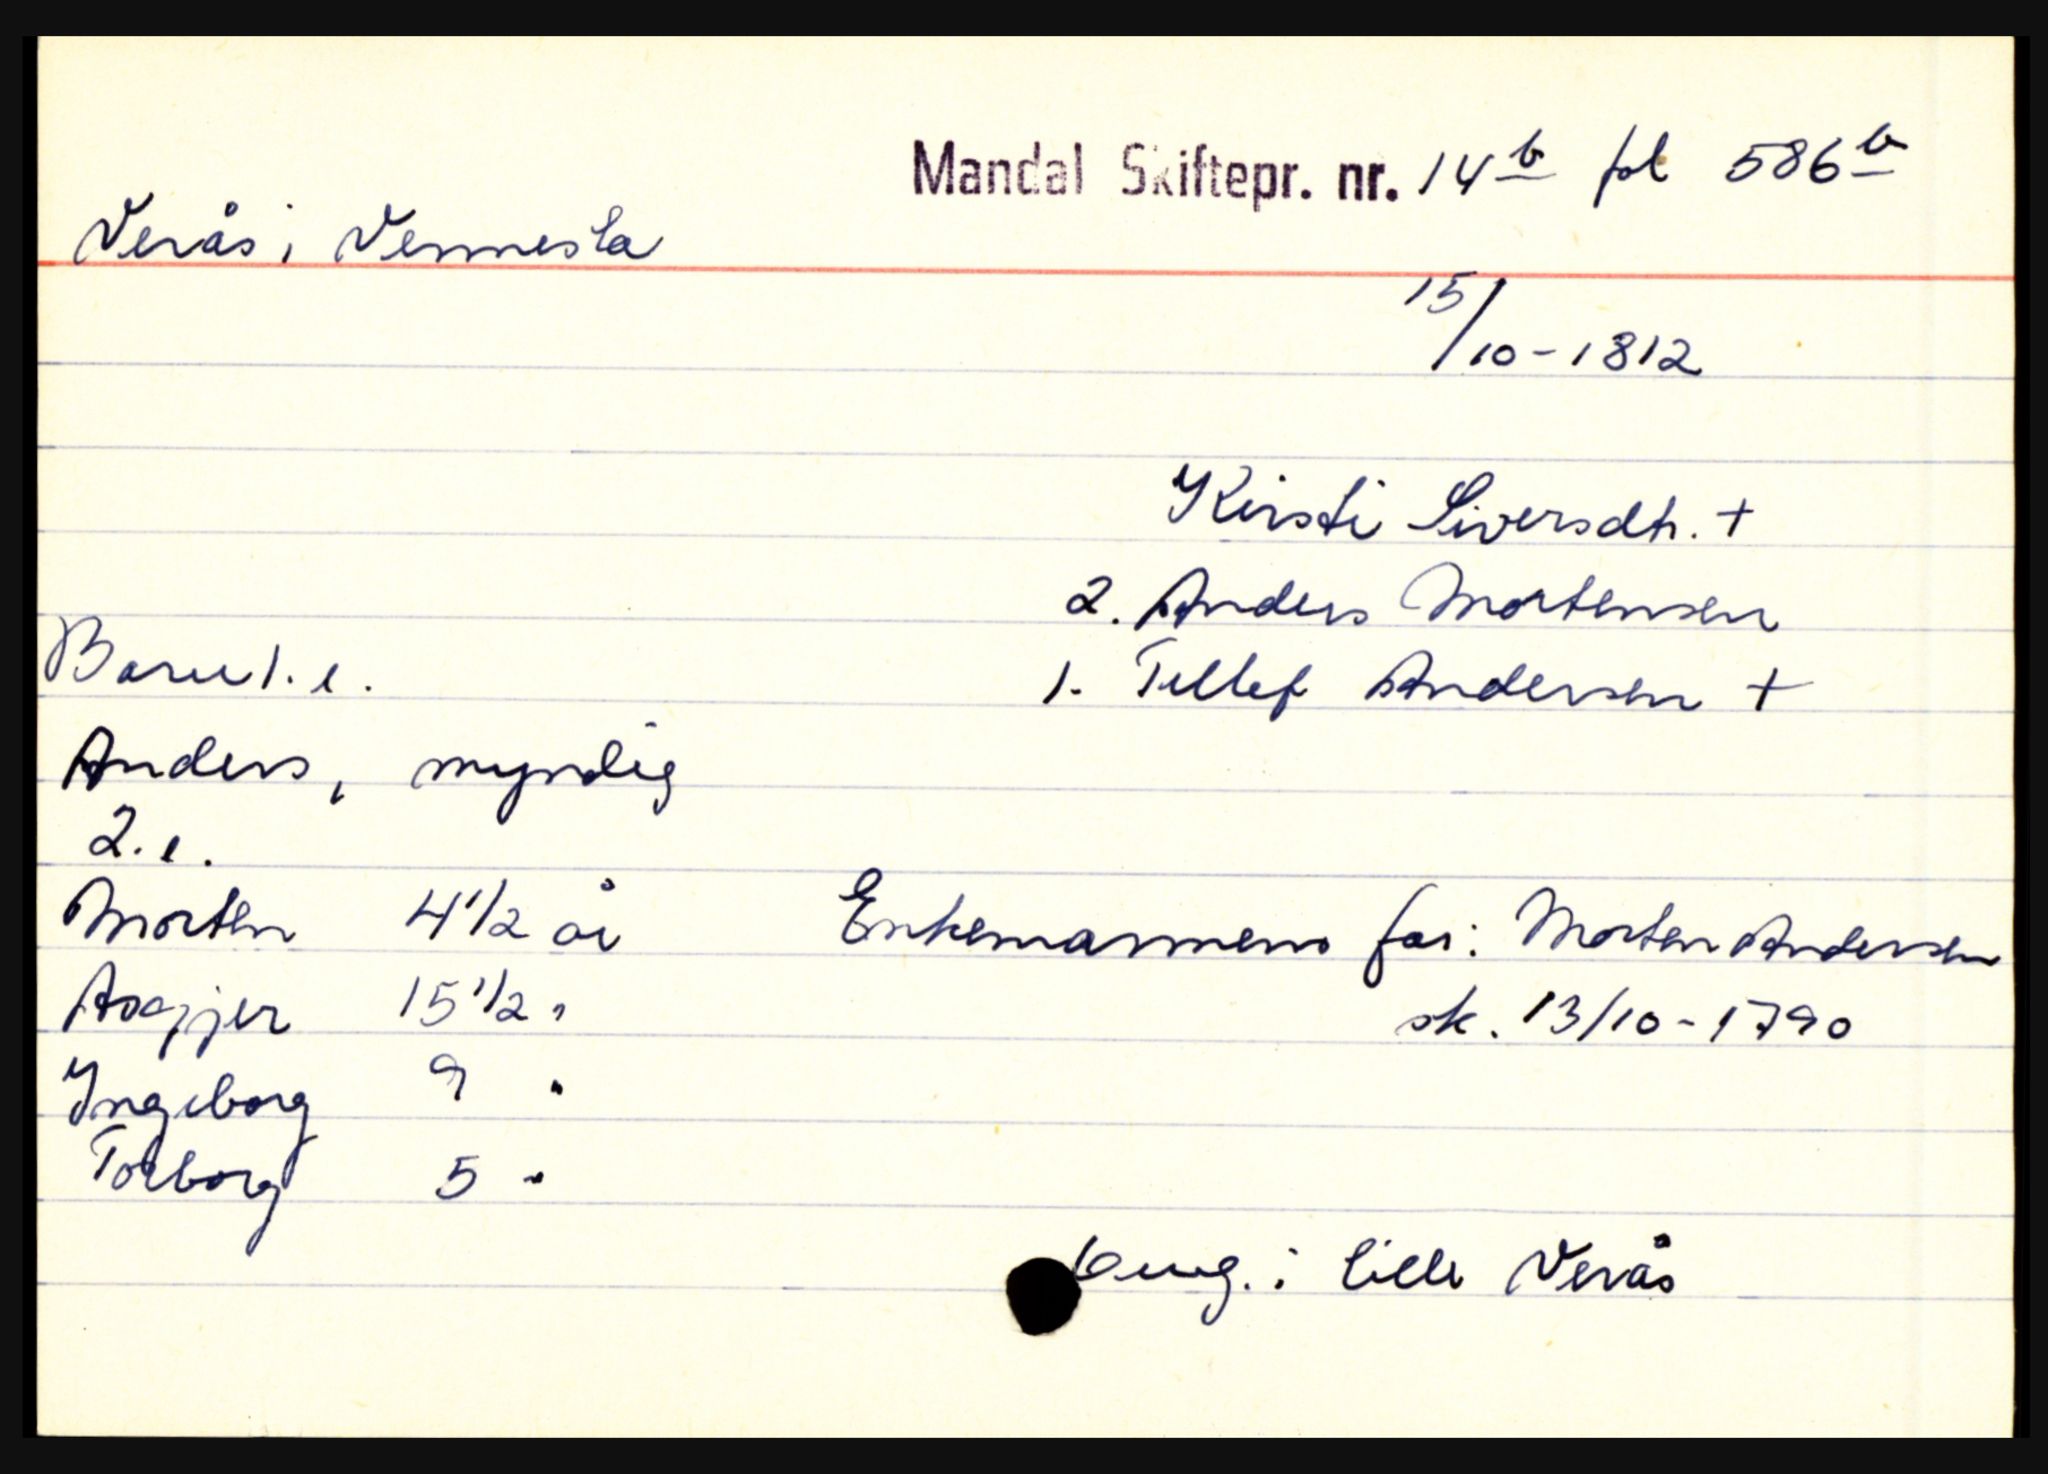 Mandal Skiftepr. nr. 14b fol 586b
Verås i Vennesla
15/10-1812
Kirsti Siversdtr. +
2. Anders Mortensen
Barn 1. e.
1. Tellef Andersen +
Anders, myndig
2. e.
Morten 4 1/2 år Enkemannens far: Morten Andersen
Asgjer 15 1/2 "
sk. 13/10-1790
Ingeborg 9 "
Torborg 5 "
i lille Verås